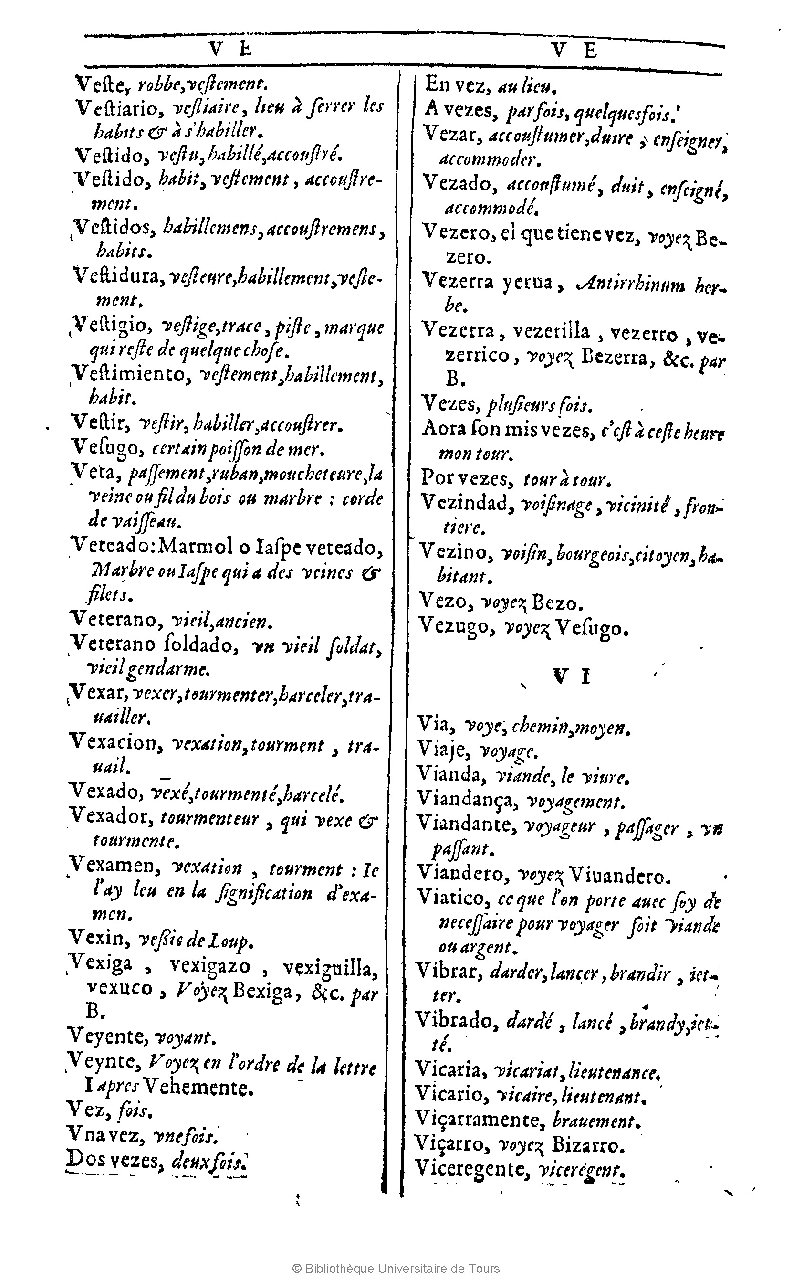 V E
Veſte, robbe, veſtement.
Veſtiario, veſtiaire, lieu à ſerrer les
habits & à s'habiller.
Veſtido, veſtu, habillé, accouſtré.
Veſtido, habit, veſtement, accouſtre-
ment.
Veſtidos, habillemens, accouſtremens,
habits.
Veſtidura, veſteure, habillement, veſte-
ment.
Veſtigio, veſtige, trace, piſte, marque
qui reſte de quelque choſe.
Veſtimiento, veſtement, habillement,
habit.
Veſtir, veſtir, habiller, accouſtrer.
Veſugo, certain poiſſon de mer.
Veta, paſſement, ruban, moucheteure, la
veine ou fil du bois ou marbre : corde
de vaiſſeau.
Veteado: Marmol o Iaſpe veteado,
Marbre ou Iaſpe qui a des veines &
filets.
Veterano, vieil, ancien.
Veterano ſoldado, vn vieil ſoldat,
vieil gendarme.
Vexar, vexer, tourmenter, harceler, tra-
uailler.
Vexacion, vexation, tourment, tra-
uail.
Vexado, vexé, tourmenté, harcelé.
Vexador, tourmenteur, qui vexe &
tourmente.
Vexamen, vexation, tourment : Ie
l'ay leu en la ſignification d'exa-
men.
Vexin, veßie de Loup.
Vexiga, vexigazo, vexiguilla,
vexuco, Voyez Bexiga, &c. par
B.
Veyente, voyant.
Veynte, Voyez en l'ordre de la lettre
I apres Vehemente.
Vez, fois.
Vna vez, vne fois.
Dos vezes, deux fois.
V E
En vez, au lieu.
A vezes, par fois, quelquesfois.
Vezar, accouſtumer, duire, enſeigner,
accommoder.
Vezado, accouſtumé, duit, enſeigné,
accommodé.
Vezero, el que tiene vez, voyez Be-
zero.
Vezerra yerua, Antirrhinum her-
be.
Vezerra, vezerilla, vezerro, ve-
zerrico, voyez Bezerra, &c. par
B.
Vezes, pluſieurs fois.
Aora ſon mis vezes, c'eſt à ceſte heure
mon tour.
Por vezes, tour à tour.
Vezindad, voiſinage, vicinité, fron-
tiere.
Vezino, voiſin, bourgeois, citoyen, ha-
bitant.
Vezo, voyez Bezo.
Vezugo, voyez Veſugo.
V I
Via, voye, chemin, moyen.
Viaje, voyage.
Vianda, viande, le viure.
Viandança, voyagement.
Viandante, voyageur, paſſager, vn
paſſant.
Viandero, voyez Viuandero.
Viatico, ce que l'on porte auec ſoy de
neceſſaire pour voyager ſoit viande
ou argent.
Vibrar, darder, lancer, brandir, iet-
ter.
Vibrado, dardé, lancé, brandy, iet-
té.
Vicaria, vicariat, lieutenance.
Vicario, vicaire, lieutenant.
Viçarramente, brauement.
Viçarro, voyez Bizarro.
Viceregente, viceregent.
© Bibliothèque Universitaire de Tours